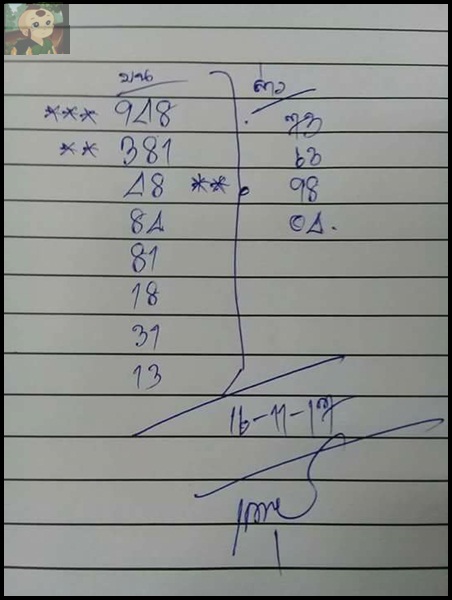 บน
*** 948
** 381
48
84
81
18
31
13
ล่าง
73
63
** 98
04.
16-11-17